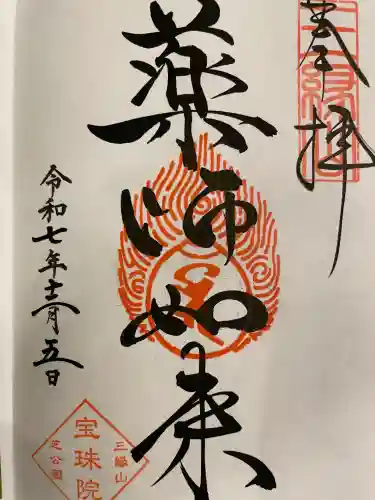 奉拝
薬師如来
令和七年十二月五日
三縁山
宝珠院
芝公園